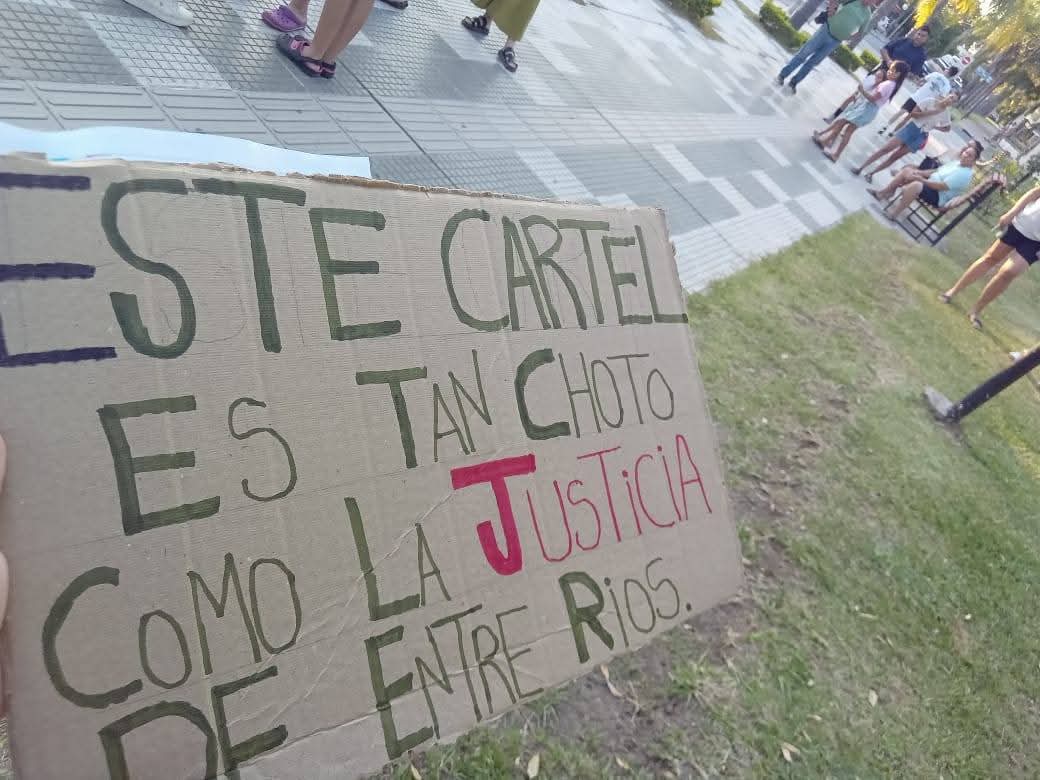 ESTE CARTEL
ES TAN CHOTO
COMO LA JUSTICIA
DE ENTRE RIOS.